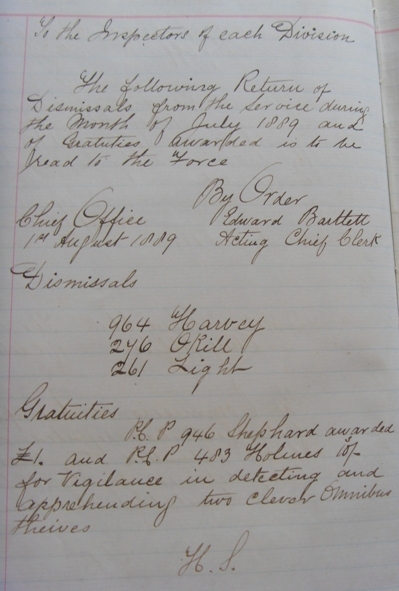 To the Inspectors of each Division
The following Return of
Dismissals from the Service during
the Month of July 1889 and
of Gratuties awarded is to be
read to the Force
By Order
Chief Office Edward Bartlett
1st August 1889 Acting Chief Clerk
Dismissals
964 Harvey
276 OKill
261 Light
Gratuities
P.C. P 946 Shephard awarded
£1. and P.C. P 483 Holmes 10/-
for Vigilance in detecting and
apprehending two clever Omnibus
theives
H. S.